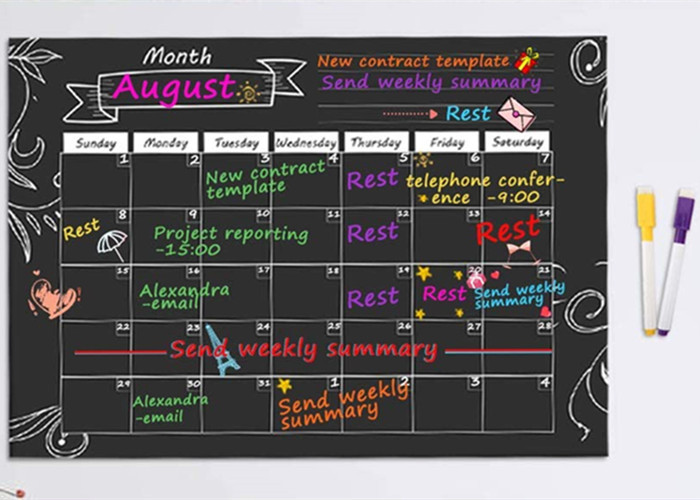 Month
August
New contract template
Send weekly summary
Rest
Sunday Monday Tuesday Wednesday Thursday Friday Saturday
1 2 3 4 5 6 7
New contract
template
Rest
telephone confer-
ence -9:00
8 9 10 11 12 13 14
Rest
Project reporting
-15:00
Rest
Rest
15 16 17 18 19 20 21
Alexandra
-email
Rest
Rest
Send weekly
summary
22 23 24 25 26 27 28
Send weekly summary
29 30 31 1 2 3 4
Alexandra
-email
Send weekly
summary